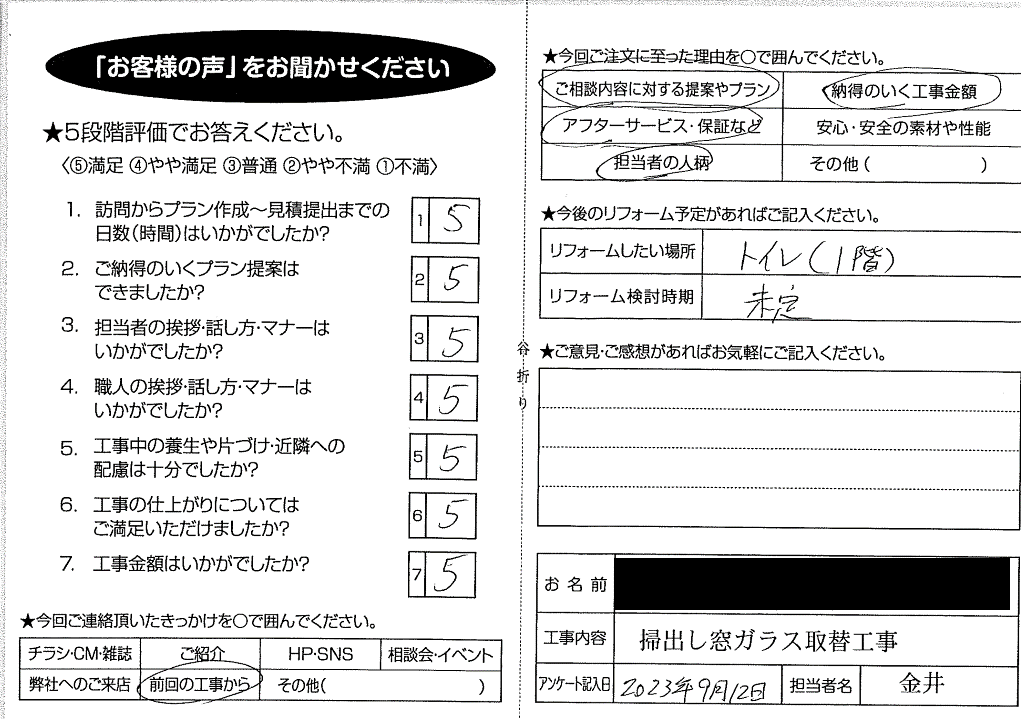 「お客様の声」をお聞かせください
★5段階評価でお答えください。
〈⑤満足 ④やや満足 ③普通 ②やや不満 ①不満〉
1. 訪問からプラン作成〜見積提出までの
日数(時間)はいかがでしたか?
1 5
2. ご納得のいくプラン提案は
できましたか?
2 5
3. 担当者の挨拶・話し方・マナーは
いかがでしたか?
3 5
4. 職人の挨拶・話し方・マナーは
いかがでしたか?
4 5
5. 工事中の養生や片づけ・近隣への
配慮は十分でしたか?
5 5
6. 工事の仕上がりについては
ご満足いただけましたか?
6 5
7. 工事金額はいかがでしたか?
7 5
★今回ご連絡頂いたきっかけを○で囲んでください。
チラシ・CM・雑誌 ご紹介 HP・SNS 相談会・イベント
弊社へのご来店 前回の工事から その他( )
谷折り
★今回ご注文に至った理由を○で囲んでください。
ご相談内容に対する提案やプラン 納得のいく工事金額
アフターサービス・保証など 安心・安全の素材や性能
担当者の人柄 その他( )
★今後のリフォーム予定があればご記入ください。
リフォームしたい場所 トイレ(1階)
リフォーム検討時期 未定
★ご意見・ご感想があればお気軽にご記入ください。
お名前
工事内容 掃出し窓ガラス取替工事
アンケート記入日 2023年9月12日 担当者名 金井